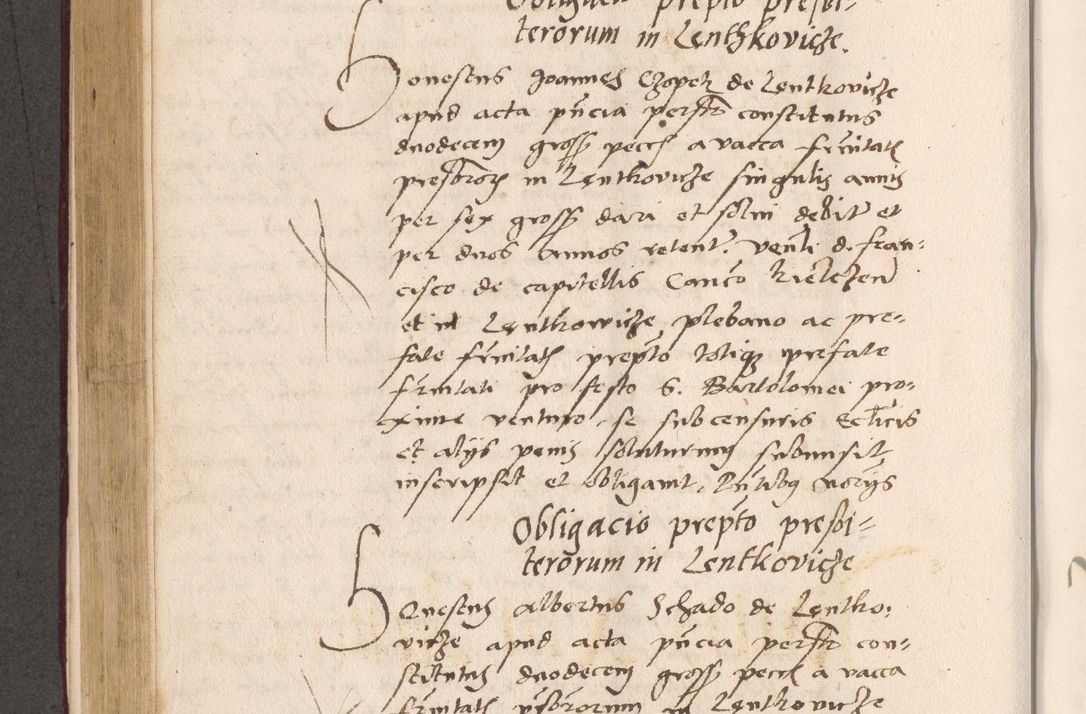 Obligacio prepto presbi-
terorum in Lenthkovicze.
Honestus Joannes Czopek de Lentkovicze
apud acta pñcia personlr constitutus
duodecem gross pecc a vacca frnitatis
presbroru in Lentkovicze singulis annis
per sex gross dari et solui debit et
per duos annos retent. venli d. fran-
cisco de capitellis Canco kielczen
et in Lentkowicze plebano ac pre-
fate frnitatis prepto totiqz prefate
frnitati pro festo S. Bartolomei pro-
xime venturo se sub censuris Eclicis
et alijs penis soluturum submisit
inscripsit et obligavit. Pntibus
Obligacio prepto presbi-
terorum in Lentkovicze
Honestus Albertus Schado de Lentko-
vicze apud acta pñcia personlr con-
stitutus duodecem gross pecc a vacca
frnitatis psbrorum in Lentkovicze